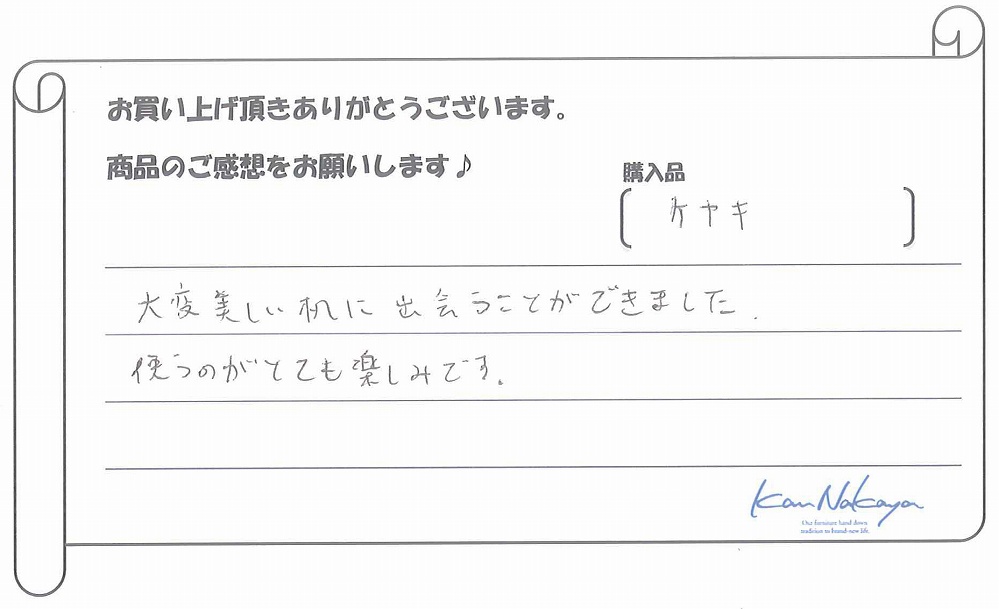 お買い上げ頂きありがとうございます。
商品のご感想をお願いします♪
購入品
ケヤキ
大変美しい机に出会うことができました.
使うのがとても楽しみです。
KanNakaya
Our furniture hand down
tradition to brand-new life.